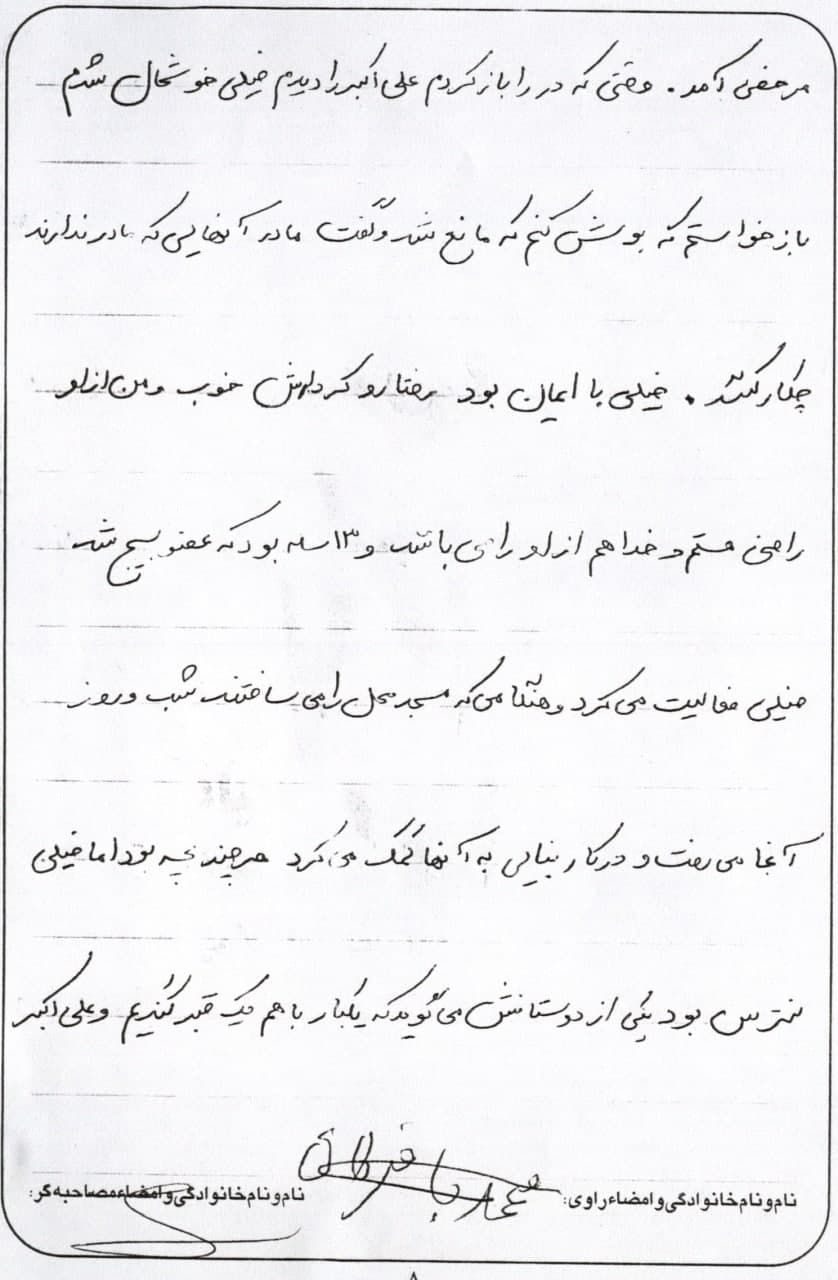 مرخصی آمد. وقتی که در را باز کردم علی اکبر را دیدم خیلی خوشحال شدم
باز خواستم که بوسش کنم که مانع شد و گفت مادر آنهایی که مادر ندارند
چکار کنند. خیلی با ایمان بود رفتار و کردارش خوب و من از او
راضی هستم و خدا هم از او راضی باشد و ۱۳ ساله بود که عضو بسیج شد
خیلی فعالیت می کرد و هنگامی که مسجد محل را می ساختند شب و روز
آنجا می رفت و در کار بنایی به آنها کمک می کرد هر چند بچه بود اما خیلی
نترس بود یکی از دوستانش می گوید که یکبار با هم یک قبر کندیم و علی اکبر
نام و نام خانوادگی و امضاء راوی:
نام و نام خانوادگی و امضاء مصاحبه گر:
۸